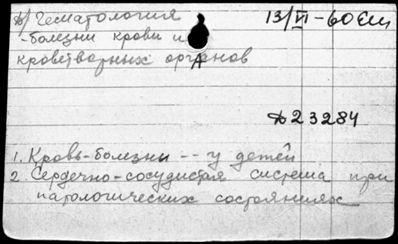 в) Гематология 13/VI-60 Ем
-болезни крови и
кроветворных органов
А
Д23284
1. Кровь-болезни -- у детей
2. Сердечно-сосудистая система при
патологических состояниях